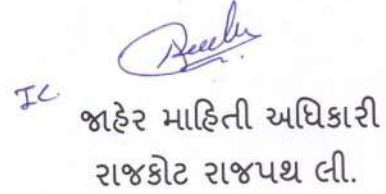 IC
જાહેર માહિતી અધિકારી
રાજકોટ રાજપથ લી.